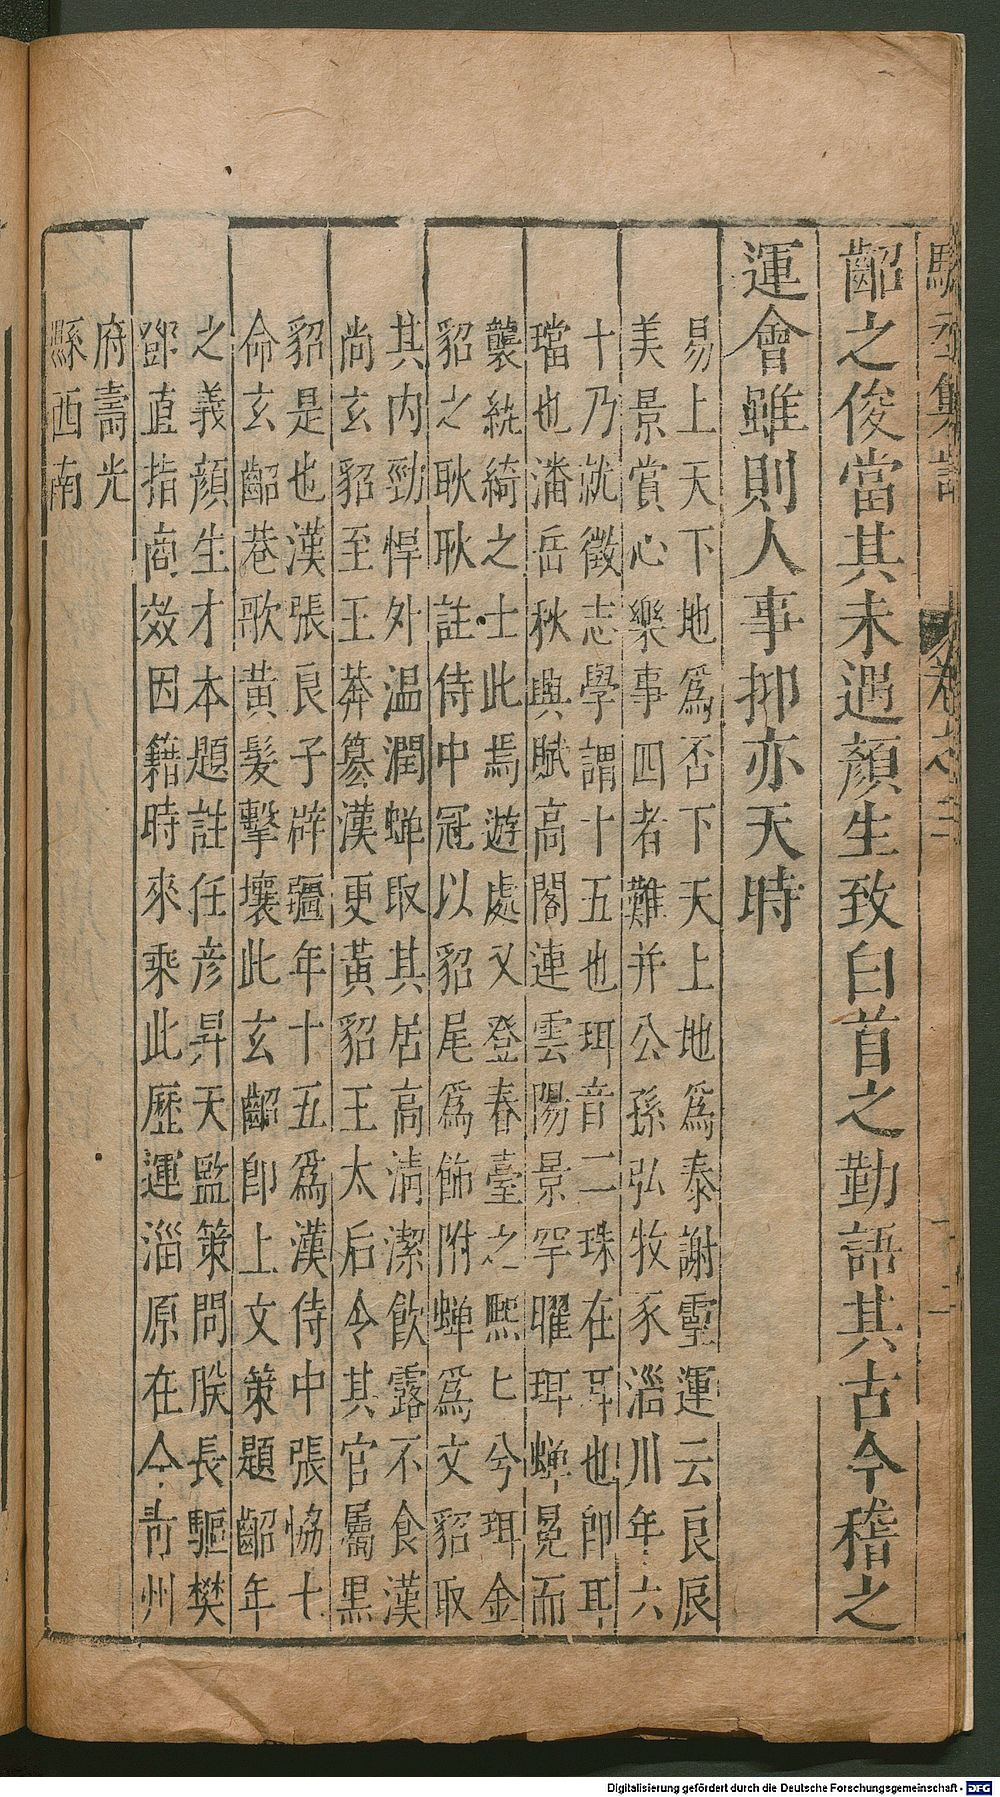 齠之俊當其未遇顏生致白首之勤語其古今稽之
運會雖則人事抑亦天時
易上天下地爲否下天上地爲泰謝靈運云良辰
美景賞心樂事四者難并公孫弘牧豕淄川年六
十乃就徵志學謂十五也珥音二珠在耳也卽耳
璫也潘岳秋興賦高閣連雲陽景罕曜珥蟬冕而
襲紈綺之士此焉遊處又登春臺之熙匕兮珥金
貂之耿耿註侍中冠以貂尾爲飾附蟬爲文貂取
其內勁悍外温潤蟬取其居高淸潔飮露不食漢
尚玄貂至王莽篡漢更黃貂王太后令其官屬黑
貂是也漢張良子辟疆年十五爲漢侍中張協七
命玄齠巷歌黃髮擊壤此玄齠卽上文策題齠年
之義顏生才本題註任彥昇天監策問朕長驅樊
鄧直指商效因籍時來乘此歷運淄原在今靑州
府壽光
縣西南
集註
卷之三
Digitalisierung gefördert durch die Deutsche Forschungsgemeinschaft - DFG